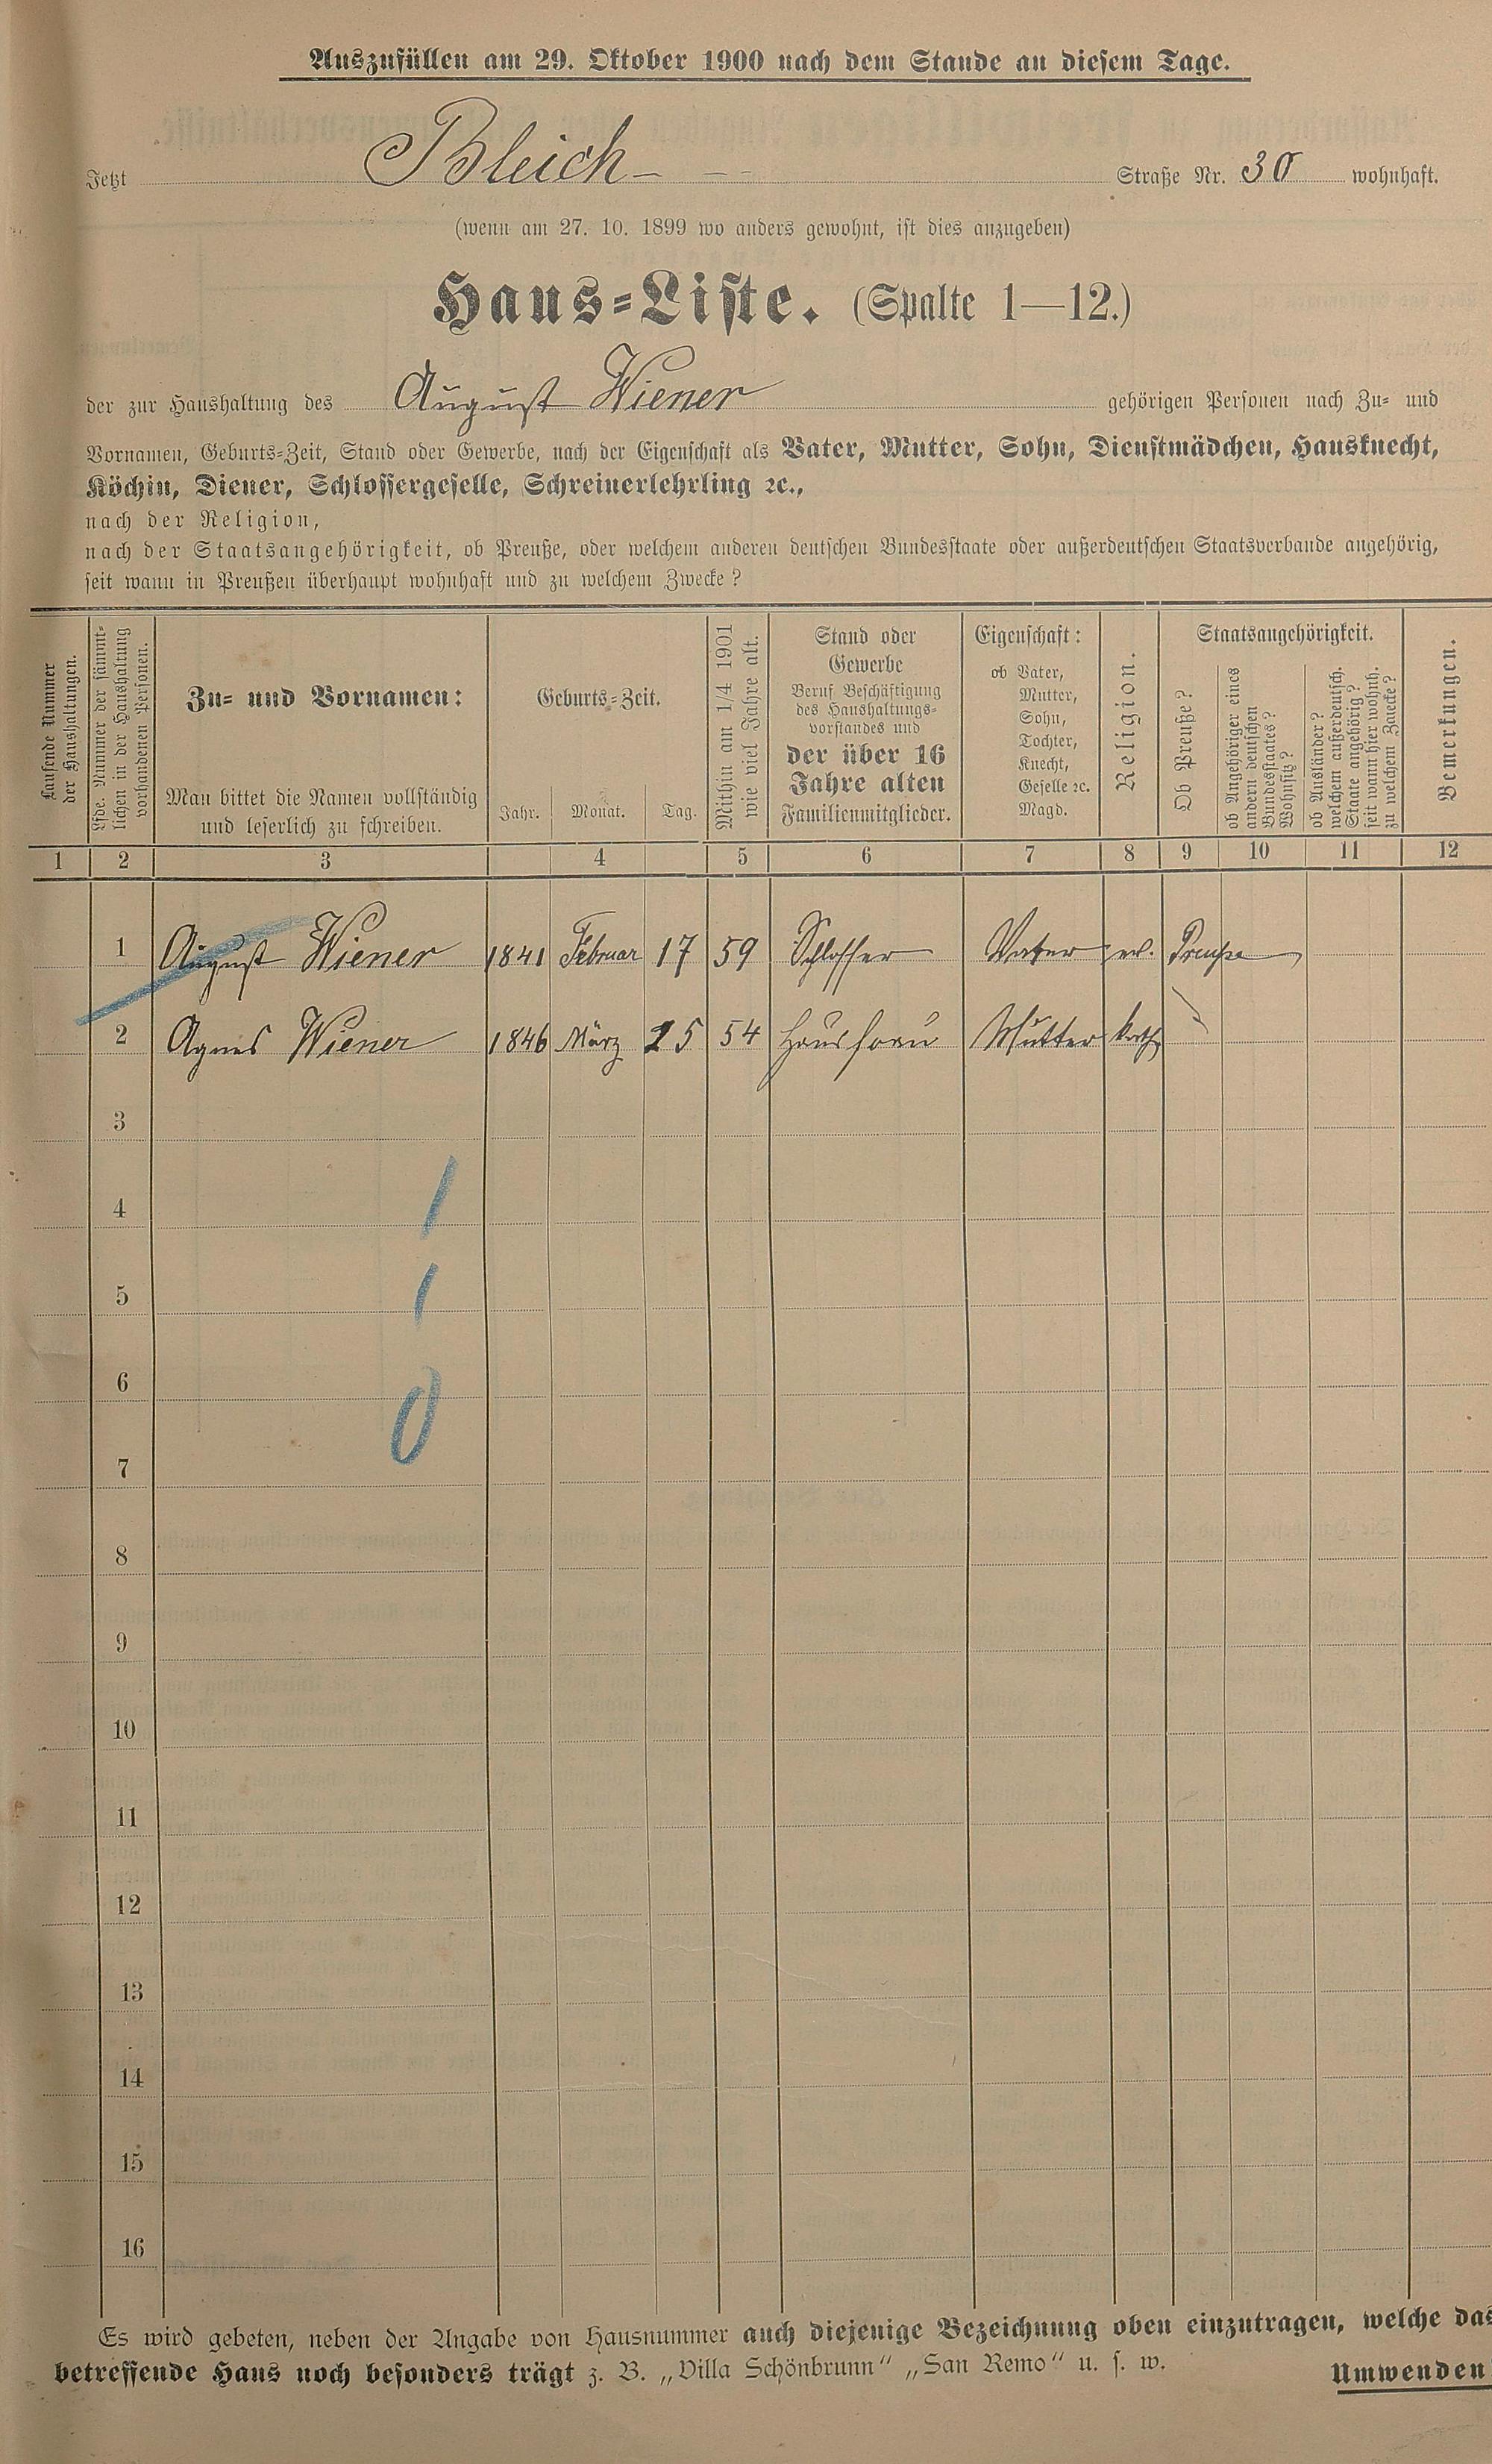 Auszufüllen am 29. Oktober 1900 nach dem Stande an diesem Tage.
Jetzt Bleich- Straße Nr. 30 wohnhaft.
(wenn am 27. 10. 1899 wo anders gewohnt, ist dies anzugeben)
Haus-Liste. (Spalte 1—12.)
der zur Haushaltung des August Wiener gehörigen Personen nach Zu- und
Vornamen, Geburts-Zeit, Stand oder Gewerbe, nach der Eigenschaft als Vater, Mutter, Sohn, Dienstmädchen, Hausknecht,
Köchin, Diener, Schlossergeselle, Schreinerlehrling ꝛc.,
nach der Religion,
nach der Staatsangehörigkeit, ob Preuße, oder welchem anderen deutschen Bundesstaate oder außerdeutschen Staatsverbande angehörig,
seit wann in Preußen überhaupt wohnhaft und zu welchem Zwecke?
Laufende Nummer
der Haushaltungen.
Lfde. Nummer der sämmt-
lichen in der Haushaltung
vorhandenen Personen.
Zu- und Vornamen:
Man bittet die Namen vollständig
und leserlich zu schreiben.
Geburts-Zeit.
Jahr. Monat. Tag.
Mithin am 1/4 1901
wie viel Jahre alt.
Stand oder
Gewerbe
Beruf Beschäftigung
des Haushaltungs-
vorstandes und
der über 16
Jahre alten
Familienmitglieder.
Eigenschaft:
ob Vater,
Mutter,
Sohn,
Tochter,
Knecht,
Geselle ꝛc.
Magd.
Religion.
Staatsangehörigkeit.
Ob Preuße?
ob Angehöriger eines
andern deutschen
Bundesstaates?
Wohnsitz?
ob Ausländer?
welchem außerdeutsch.
Staate angehörig?
seit wann hier wohnh.
zu welchem Zwecke?
Bemerkungen.
1 2 3 4 5 6 7 8 9 10 11 12
1 August Wiener 1841 Februar 17 59 Schlosser Vater ev. Preuße
2 Agnes Wiener 1846 März 25 54 Hausfrau Mutter kath.
3
4
5
6
7
8
9
10
11
12
13
14
15
16
Es wird gebeten, neben der Angabe von Hausnummer auch diejenige Bezeichnung oben einzutragen, welche das
betreffende Haus noch besonders trägt z. B. „Villa Schönbrunn“ „San Remo“ u. s. w.
Umwenden